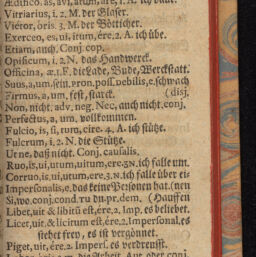 Ædifico, as, avi, atum, are, 1. A. ich baue.
Vitriarius, i. 2. M. der Glaser.
Viëtor, oris. 3. M. der Bötticher.
Exerceo, es, ui, itum, ére. 2. A. ich übe.
Etiam, auch. Conj. cop.
Opificum, i. 2. N. das Handwerck.
Officina, æ. 1. F. die Lade, Bude, Werckstatt.
Suus, a, um. sein. Pron. poss. Debilis, e. schwach
Firmus, a, um, fest, starck. (disj.
Non, nicht. adv. neg. Nec, auch nicht. conj.
Perfectus, a, um, vollkommen.
Fulcio, is, si, tum, cire. 4. A. ich stütze.
Fulcrum, i. 2. N. die Stütze.
Urne, daß nicht. Conj. causalis.
Ruo, is, ui, utum, ere. 3. N. ich falle um.
Corruo, is, ui, utum, ere, 3. N. ich falle über ei-
Impersonalis, e. das keine Personen hat. (nen
Si, wo. conj. cond. tu du. pr. dem. (Hauffen
Liber, uit & libitū est, ére. 2. Imp. es beliebet.
Licet, uit, & licitum est, ére. 2. Impersonal. es
stehet frey, es ist vergönnet.
Piget, uit, ére. 2. Impers. es verdreusst.